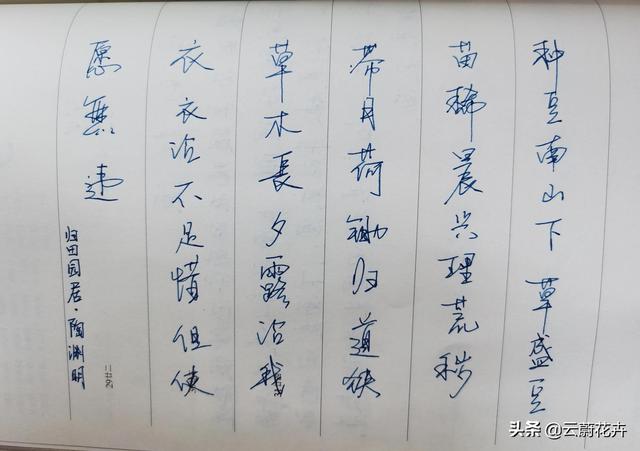 种豆南山下草盛豆
苗稀晨兴理荒秽
带月荷锄归道狭
草木長夕露沾我
衣衣沾不足惜但使
愿無違
归田园居·陶渊明
头条 @云蔚花卉